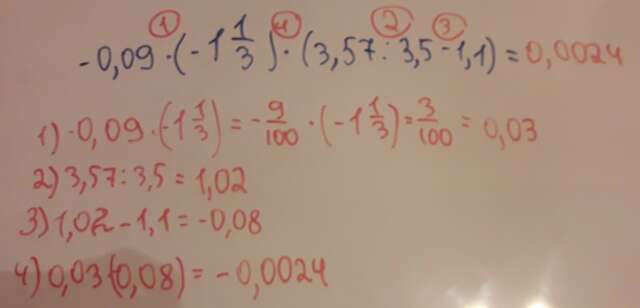 ① ④ ② ③
-0,09·(-1 1/3)·(3,57:3,5-1,1)=0,0024
1)-0,09·(-1 1/3)=-9/100·(-1 1/3)=3/100=0,03
2)3,57:3,5=1,02
3)1,02-1,1=-0,08
4)0,03(0,08)=-0,0024